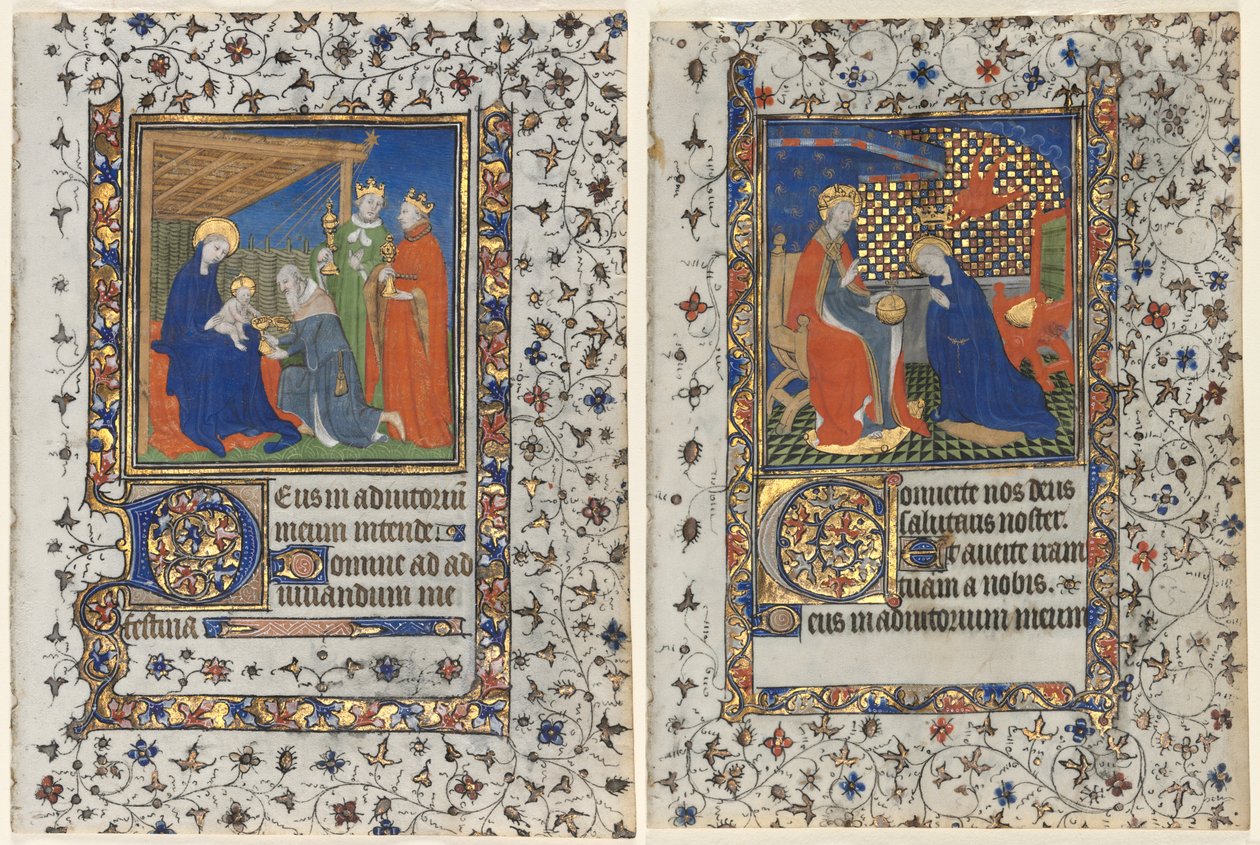 Deus in adiutoriū
meum intende.
Domine ad ad
iuuandum me
festina
Conuerte nos deus
salutaris noster.
Et auerte iram
tuam a nobis.
Deus in adiutorium meum